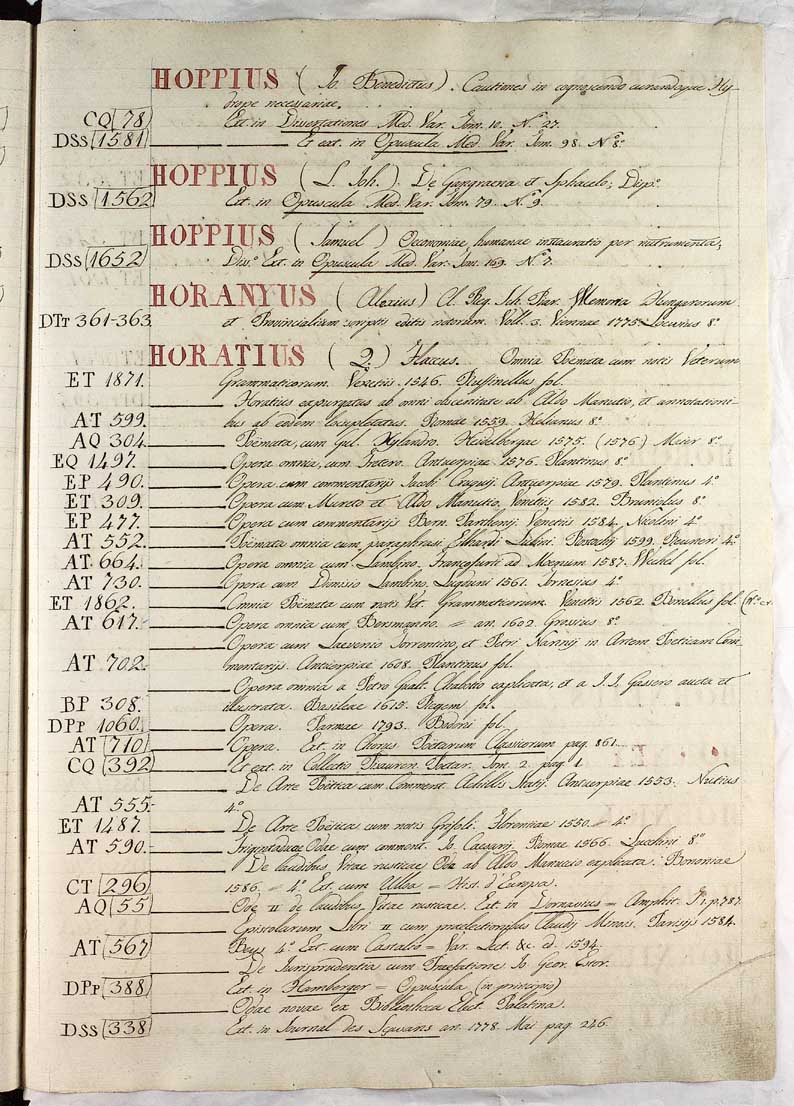 HOPPIUS ( Io. Benedictus). Cautiones in cognoscendo curandoque Hy-
drope necessariae.
CQ 78 Ext. in Dissertationes Med. Var. Tom. 10. N.º 27.
DSs 1581 Et ext. in Opuscula Med. Var. Tom. 98. N.º 8.
HOPPIUS ( L. Joh. ). De Gangraena et Sphacelo; Disp.º
DSs 1562 Ext. in Opuscula Med. Var. Tom. 79. N.º 9.
HOPPIUS ( Samuel ) Oeconomiae humanae instauratio per instrumenta;
DSs 1652 Diss.º Ext. in Opuscula Med. Var. Tom. 169. N.º 7.
HORANYUS ( Alexius) Cl. Reg. Sch. Piar. Memoria Hungarorum
DTt 361-363. et Provincialium scriptis editis notorum. Voll. 3. Viennae 1775. Loewius 8.º
HORATIUS ( Q. ) Flaccus. Omnia Poëmata cum notis Veterum
ET 1871. Grammaticorum. Venetiis. 1546. fol.
Horatius expurgatus ab omni obscenitate ab Aldo Manutio, et annotationi-
AT 599. bus ab eodem locupletatus. Romae 1559. Helianus 8.º
AQ 304. Poëmata, cum Gul. Xylandro. Heidelbergae 1575. (1576) Meier 8.º
EQ 1497. Opera omnia, cum Fretero. Antuerpiae 1576. Plantinus 8.º
EP 490. Opera cum commentarijs Jacobi Cruquij. Antuerpiae 1579. Plantinus 4.º
ET 309. Opera cum Mureto et Aldo Manutio. Venetiis 1582. 8.º
EP 477. Opera cum commentarijs Bern. Parthenij. Venetiis 1584. Nicolini 4.º
AT 552. Poëmata omnia cum paraphrasi Eilhardi Lubini. Rostochij 1599. 4.º
AT 664. Opera omnia cum Lambino. Francofurti ad Moenum 1587. Wechel fol.
AT 730. Opera cum Dionisio Lambino. Lugduni 1561. Tornesius 4.º
ET 1862. Omnia Poëmata cum notis Vet. Grammaticorum. Venetiis 1562. Bonellus fol.
AT 617. Opera omnia cum Bersmanno. = an. 1602. Grosius 8.º
Opera cum Laevenio Torrentino, et Petri Nannij in Artem Poeticam Com-
AT 702. mentarijs. Antuerpiae 1608. Plantinus fol.
Opera omnia a Petro Gualt. Chabotio explicata, et a J. J. Grassero aucta et
BP 308. illustrata. Basileae 1615. Regem fol.
DPp 1060. Opera. Parmae 1793. Bodoni fol.
AT 710 Opera. Ext. in Chorus Poetarum Classicorum pag. 861.
CQ 392 Et ext. in Collectio Pisauren. Poetar. Tom. 2. pag. 1.
De Arte Poëtica cum Comment. Achillis Statij. Antuerpiae 1553. Nutius
AT 555. 4.º
ET 1487. De Arte Poëtica cum notis Grifoli. Florentiae 1550. = 4.º
AT 590. Trigintaduae Odae cum comment. Io. Caesarij. Romae 1566. Lucchini 8.º
De laudibus Vitae rusticae Ode ab Aldo Manuccio explicata. Bononiae
CT 296 1586. = 4.º Ext. cum Ulloa = Hist. d'Europa.
AQ 55 Ode II de laudibus Vitae rusticae. Ext. in Dornavius = Amphit. P. 1. p. 787.
Epistolarum Libri II cum praelectionibus Claudij Minois. Parisijs 1584.
AT 567 Beys 4.º Ext. cum Castalio = Var. Lect. &c. ed. 1594.
De Jurisprudentia cum Praefatione Io. Geor. Estor.
DPp 388 Ext. in Hamberger = Opuscula (in principio)
Odae novae ex Bibliotheca Elect. Palatina.
DSs 338 Ext. in Journal des Sçavans an. 1778. Mai pag. 246.